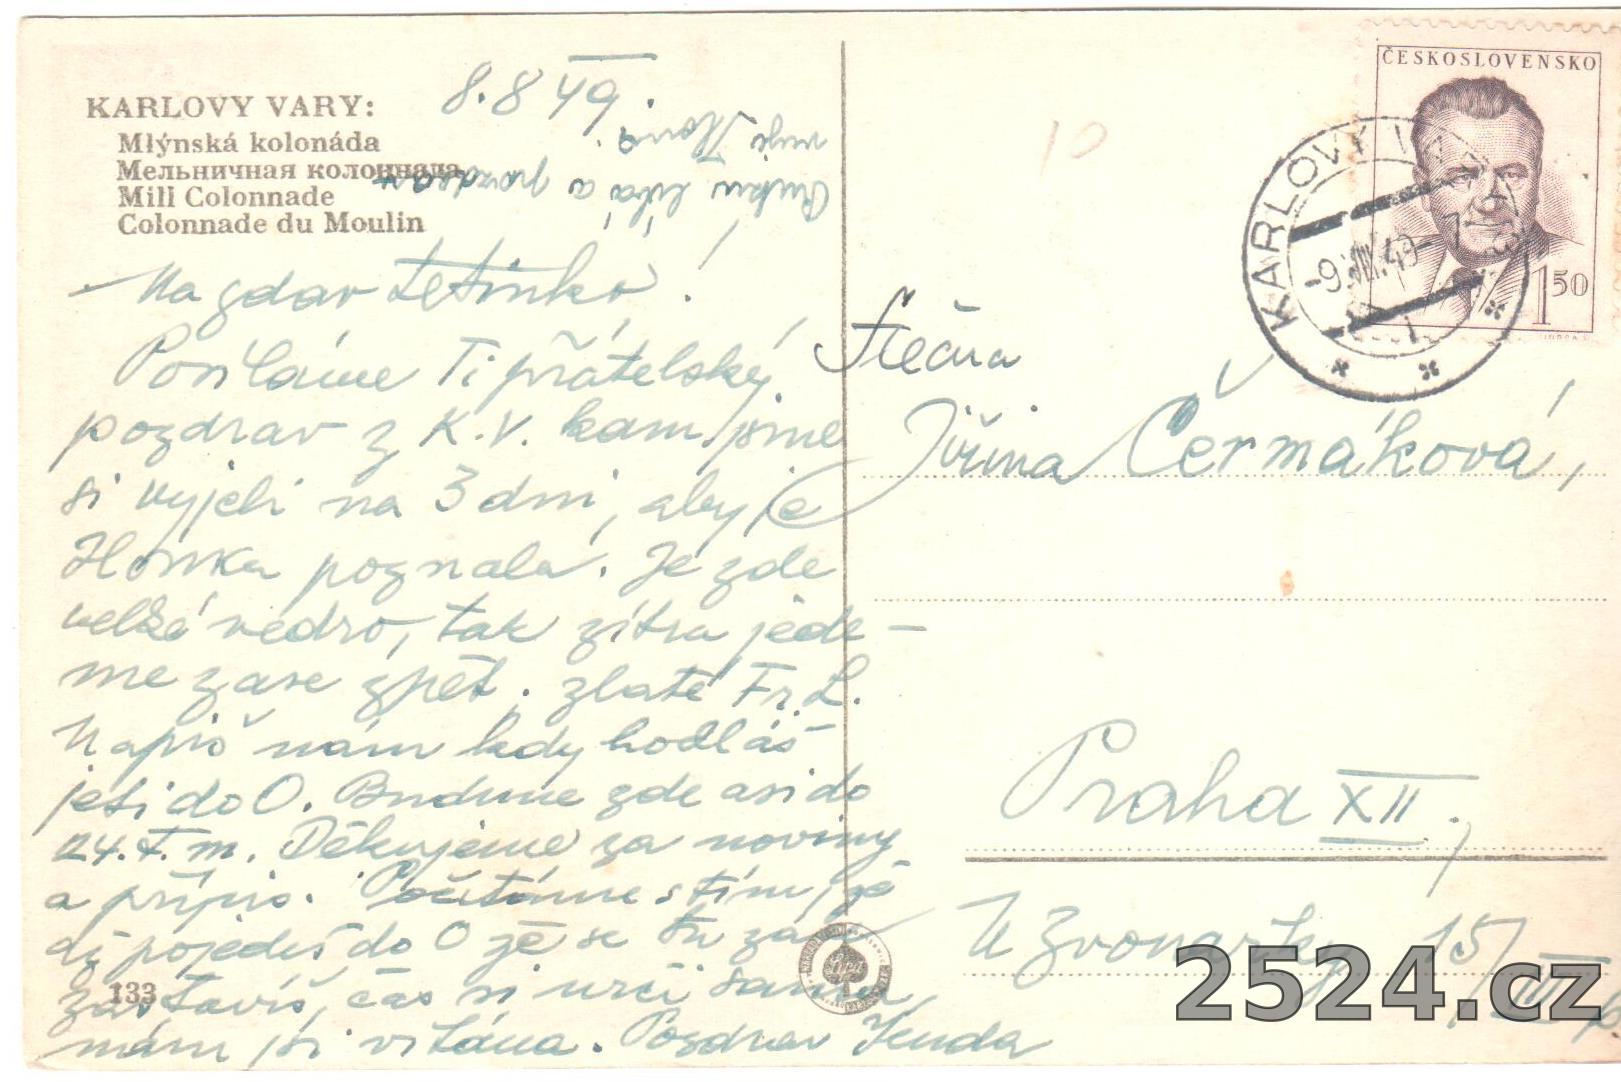 8.8 49.
KARLOVY VARY:
Mlýnská kolonáda
Мельничная колоннада
Mill Colonnade
Colonnade du Moulin
líbá a pozdrav
Nazdar tetinko!
Posíláme Ti přátelský
pozdrav z K.V. kam jsme
si vyjeli na 3 dni, aby je
Honka poznala. Je zde
velké vedro, tak zítra jede-
me zase zpět. zlaté Fr. L.
Napiš nám kdy hodláš
jeti do O. Budeme zde asi do
24. t.m. Děkujeme za noviny
a přípis. Počítáme s tím, že
až pojedeš do O že se tu
zastavíš, čas si urči sama,
nám jsi vítána. Pozdrav Jenda
133
ČESKOSLOVENSKO
1 50
KARLOVY VARY 3
-9.VIII.49-
Slečna
Jiřina Čermáková,
Praha XII.,
U Zvonařky 15/
2524.cz